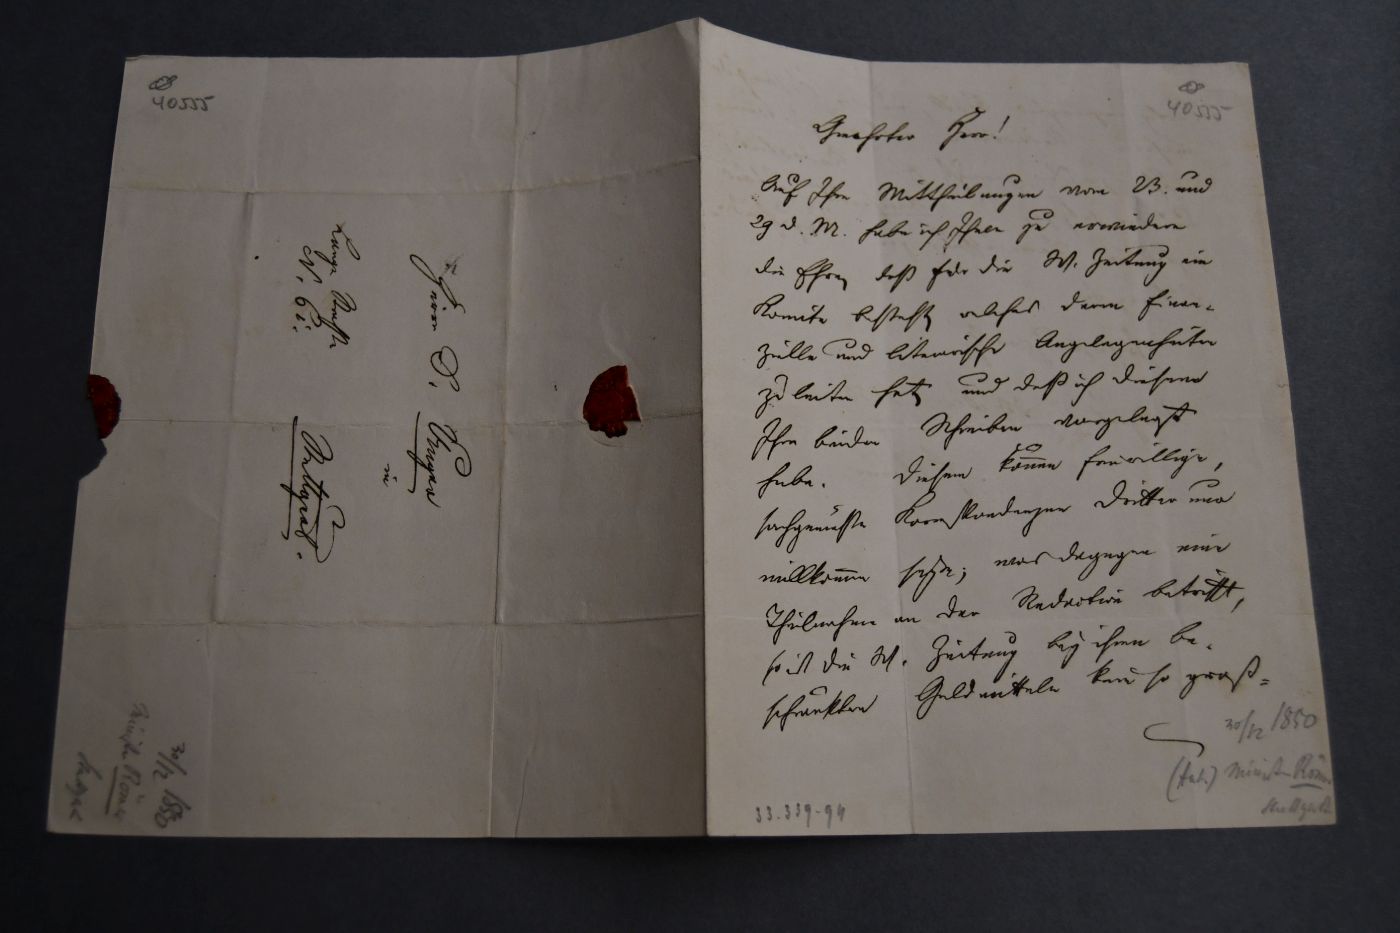 40555
Herrn D. Unger
in
Stuttgart.
Lange Straße
N. 6
30/12 1850
Minister Römer
Stuttgart
40555
Geehrter Herr!
Auf Ihre Mittheilungen vom 23. und
29 d. M. habe ich Ihnen zu erwiedern
die Ehre, daß für die W. Zeitung ein
Komite besteht, welches deren finan-
zielle und literarische Angelegenheiten
zu leiten hat, und daß ich diesem
Ihre beiden Schreiben vorgelegt
habe. Diesem können freiwillige,
sachgemäße Korrespondenzen dritter nur
willkommen seyn; was dagegen eine
Theilnahme an der Redaction betrifft,
so ist die W. Zeitung bey ihren be-
schränkten Geldmitteln kein so groß-
30/12 1850
(Aut.) Minister Römer
Stuttgart
33.339-94